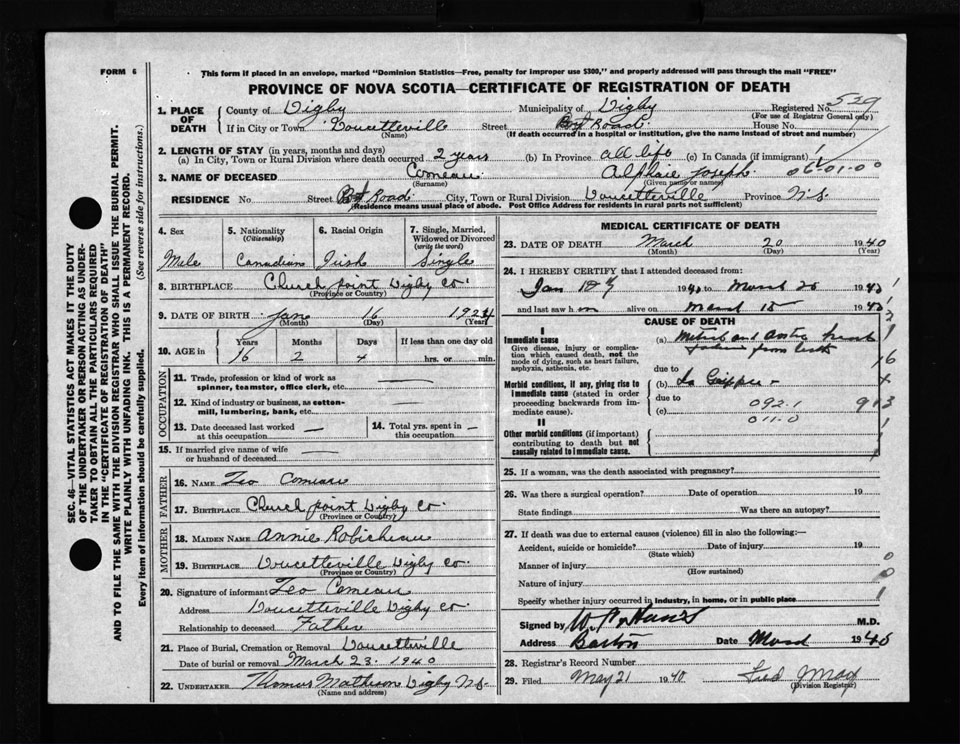 FORM 6
This form if placed in an envelope, marked "Dominion Statistics—Free, penalty for improper use $300," and properly addressed will pass through the mail "FREE"
PROVINCE OF NOVA SCOTIA—CERTIFICATE OF REGISTRATION OF DEATH
1. PLACE OF DEATH
County of Digby Municipality of Digby Registered No. 529
(For use of Registrar General only)
If in City or Town Doucetteville Street Road House No.
(Name) (If death occurred in a hospital or institution, give the name instead of street and number)
2. LENGTH OF STAY (in years, months and days)
(a) In City, Town or Rural Division where death occurred 2 years (b) In Province all life (c) In Canada (if immigrant)
3. NAME OF DECEASED Comeau Joseph 06-01-0
(Surname) (Given name or names)
RESIDENCE No. Street Road City, Town or Rural Division Doucetteville Province N.S.
(Residence means usual place of abode. Post Office Address for residents in rural parts not sufficient)
4. Sex 5. Nationality (Citizenship) 6. Racial Origin 7. Single, Married, Widowed or Divorced (write the word)
Male Canadian Irish Single
8. BIRTHPLACE Church point Digby Co.
(Province or Country)
9. DATE OF BIRTH Jan 16 1924
(Month) (Day) (Year)
10. AGE in Years Months Days If less than one day old
16 2 4 hrs. or min.
OCCUPATION
11. Trade, profession or kind of work as spinner, teamster, office clerk, etc.
12. Kind of industry or business, as cotton-mill, lumbering, bank, etc.
13. Date deceased last worked at this occupation
14. Total yrs. spent in this occupation
15. If married give name of wife or husband of deceased
FATHER
16. NAME Leo Comeau
17. BIRTHPLACE Church point Digby Co
(Province or Country)
MOTHER
18. MAIDEN NAME Annie Robicheau
19. BIRTHPLACE Doucetteville Digby Co.
(Province or Country)
20. Signature of informant Leo Comeau
Address Doucetteville Digby Co
Relationship to deceased Father
21. Place of Burial, Cremation or Removal Doucetteville
Date of burial or removal March 23. 1940
22. UNDERTAKER Thomas Matheson Digby N.S.
(Name and address)
MEDICAL CERTIFICATE OF DEATH
23. DATE OF DEATH March 20 1940
(Month) (Day)
24. I HEREBY CERTIFY that I attended deceased from:
Jan 1940 to March 20 1940
and last saw him alive on March 18 1940
CAUSE OF DEATH
I
Immediate cause
Give disease, injury or complication which caused death, not the mode of dying, such as heart failure, asphyxia, asthenia, etc.
(a) Mitral and
due to
Morbid conditions, if any, giving rise to immediate cause (stated in order proceeding backwards from immediate cause).
(b) La Grippe
due to
(c)
092.1
011.0
II
Other morbid conditions (if important) contributing to death but not causally related to immediate cause.
25. If a woman, was the death associated with pregnancy?
26. Was there a surgical operation? Date of operation 19
State findings Was there an autopsy?
27. If death was due to external causes (violence) fill in also the following:—
Accident, suicide or homicide? Date of injury 19
(State which)
Manner of injury
(How sustained)
Nature of injury
Specify whether injury occurred in industry, in home, or in public place
Signed by M.D.
Address Barton Date 1940
28. Registrar's Record Number
29. Filed May 21 1940
(Division Registrar)
SEC. 46—VITAL STATISTICS ACT MAKES IT THE DUTY
OF THE UNDERTAKER OR PERSON ACTING AS UNDER-
TAKER TO OBTAIN ALL THE PARTICULARS REQUIRED
IN THE "CERTIFICATE OF REGISTRATION OF DEATH"
AND TO FILE THE SAME WITH THE DIVISION REGISTRAR WHO SHALL ISSUE THE BURIAL PERMIT.
WRITE PLAINLY WITH UNFADING INK. THIS IS A PERMANENT RECORD.
Every item of information should be carefully supplied. (See reverse side for instructions.)